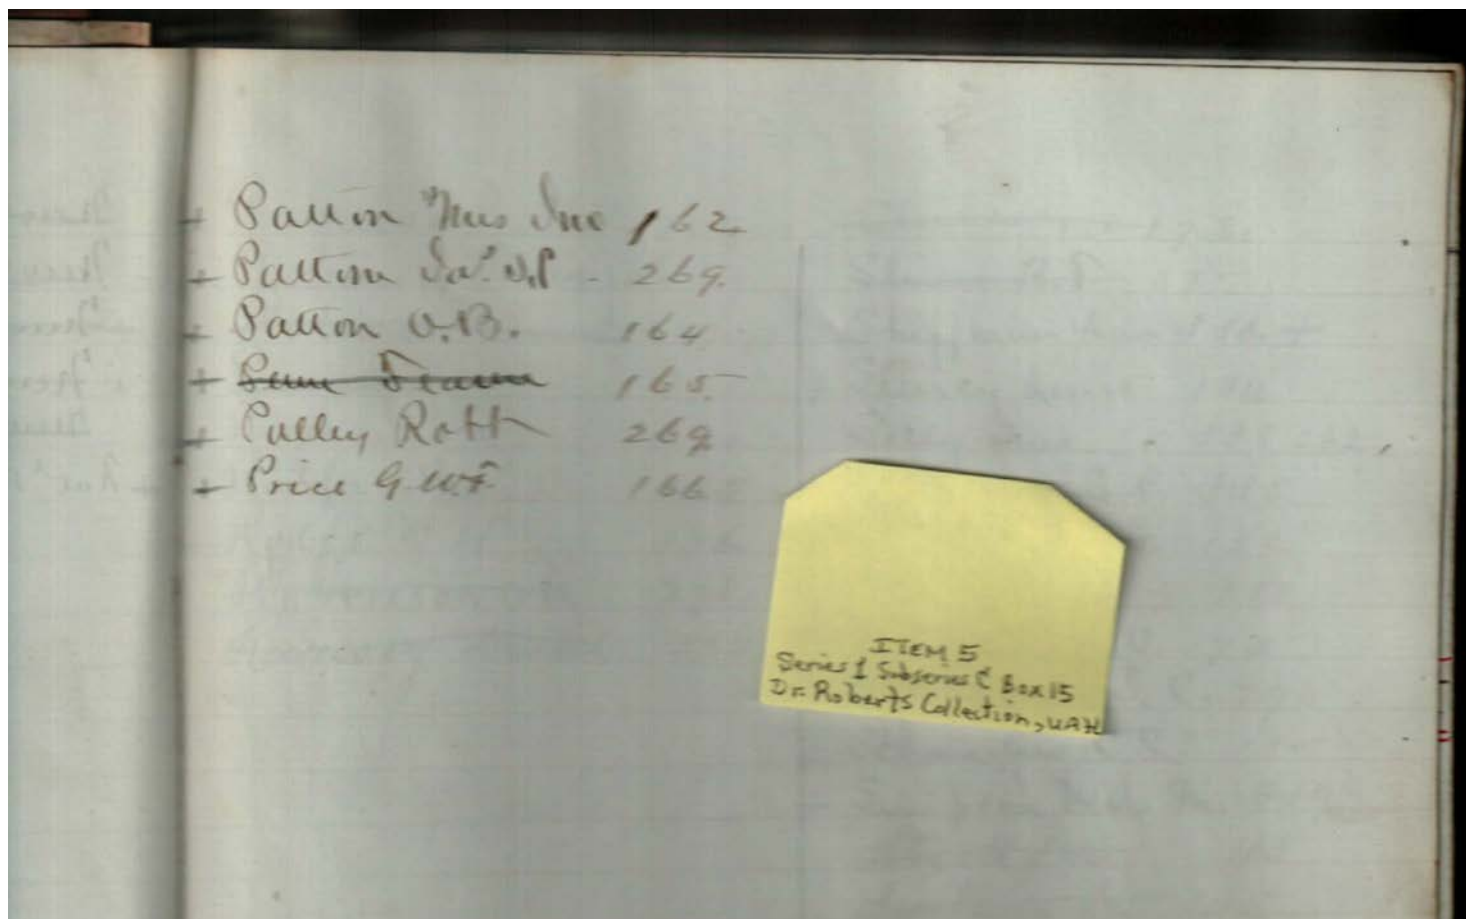 + Patton Mrs Jno 162
+ Patton Jas. 269.
+ Patton O.B. 164
+ 165
+ Pulley Robt 269
+ Price G.W.F. 166
ITEM 5
Series 1 Subseries C Box 15
Dr. Roberts Collection, UAH